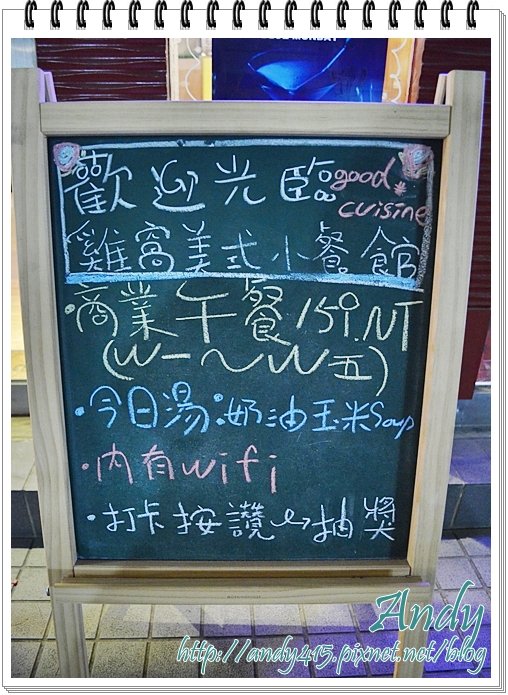 歡迎光臨good
cuisine
雞窩美式小餐館
·商業午餐159.NT
(W一~W五)
·今日湯:奶油玉米soup
·內有wifi
·打卡按讚→抽獎
Andy
http://andy415.pixnet.net/blog